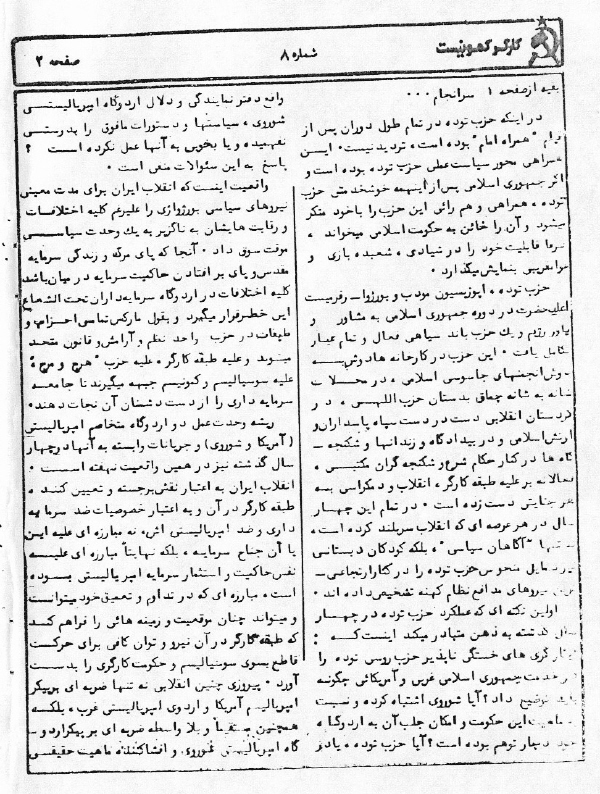 کارگر کمونیست
شماره ۸
صفحه ۲
بقیه از صفحه ۱ سرانجام ...
در اینکه حزب توده در تمام طول دوران پس از
قیام "همراه امام" بوده است، تردید نیست. ایسن
همراهی محور سیاست عملی حزب توده بوده است و
اگر جمهوری اسلامی پس از اینهمه خوشخدمتی حزب
توده، همراهی و هم رائی این حزب را با خود منکر
میشود و آن را خائن به حکومت اسلامی میخواند،
صرفا قابلیت خود را در شیادی، شعبده بازی و
عوامفریبی بنمایش میگذارد.
حزب توده، اپوزیسیون مودب و بورژوا ـ رفرمیست
اعلیحضرت در دوره جمهوری اسلامی به مشاور و
یاور رژیم و یک حزب باند سیاهی فعال و تمام عیار
تکامل یافت. این حزب در کارخانه ها دوش بسه
دوش انجمنهای جاسوسی اسلامی، در محسلات
شانه به شانه چماق بدستان حزب اللهسی، در
کردستان انقلابی دست در دست سپاه پاسداران و
ارتش اسلامی و در بیدادگاه و زندانها و شکنجه ـ
گاه ها در کنار حکام شرع و شکنجه گران مکتبسی،
فعالانه بر علیه طبقه کارگر، انقلاب و دمکراسی بسه
هر جنایتی دست زده است. در تمام این چهسار
سال در هر عرصه ای که انقلاب سربلند کرده است،
نه تنها "آگاهان سیاسی"، بلکه کودکان دبستانی
نیز شمایل منحوس حزب توده را در کنار ارتجاعی ـ
ترین نیروهای مدافع نظام کهنه تشخیص داده اند.
اولین نکته ای که عملکرد حزب توده در چهسار
سال گذشته به ذهن متبادر میکند اینست که :
ایثارگری های خستگی ناپذیر حزب روسی توده را
در خدمت جمهوری اسلامی غربی و آمریکائی چگونه
باید توضیح داد؟ آیا شوروی اشتباه کرده و نسبت
به ماهیت این حکومت و امکان جلب آن به اردوگاه
خود دچار توهم بوده است؟ آیا حزب توده، یا در
واقع دفتر نمایندگی و دلال اردوگاه امپریالیستسی
شوروی، سیاستها و دستورات مافوق را بدرستی
نفهمیده و یا بخوبی به آنها عمل نکرده است ؟
پاسخ به این سئوالات منفی است.
واقعیت اینست که انقلاب ایران برای مدت معینی
نیروهای سیاسی بورژوازی را علیرغم کلیه اختلافات
و رقابت هایشان به ناگزیر به یک وحدت سیاسسی
موقت سوق داد. آنجا که پای مرگ و زندگی سرمایه
مقدس و پای بر افتادن حاکمیت سرمایه در میان باشد
کلیه اختلافات در اردوگاه سرمایه داران تحت الشعاع
این خطر قرار میگیرد و بقول مارکس تمامی احزاب و
طبقات در حزب واحد نظم و آرامش و قانون متحد
میشوند و علیه طبقه کارگر، علیه حزب "هرج و مرج"،
علیه سوسیالیسم و کمونیسم جبهه میگیرند تا جامعه
سرمایه داری را از دست دشمنان آن نجات دهند.
ریشه وحدت عمل دو اردوگاه متخاصم امپریالیستی
(آمریکا و شوروی) و جریانات وابسته به آنها در چهار
سال گذشته نیز در همین واقعیت نهفته اسست.
انقلاب ایران به اعتبار نقش برجسته و تعیین کننده
طبقه کارگر در آن و به اعتبار خصوصیات ضد سرمایه
داری و ضد امپریالیستی اش، نه مبارزه ای علیه این
یا آن جناح سرمایه، بلکه نهایتاً مبارزه ای علیسه
نفس حاکمیت و استثمار سرمایه امپریالیستی بسوده
است، مبارزه ای که در تداوم و تعمیق خود میتوانست
و میتواند چنان موقعیت و زمینه هائی را فراهم کند
که طبقه کارگر در آن نیرو و توان کافی برای حرکست
قاطع بسوی سوسیالیسم و حکومت کارگری را بدست
آورد. پیروزی چنین انقلابی نه تنها ضربه ای بر پیکر
امپریالیسم آمریکا و اردوی امپریالیستی غرب، بلکسه
همچنین مستقیماً و بلا واسطه ضربه ای بر پیکر اردو ـ
گاه امپریالیستی شوروی، و افشاکننده ماهیت حقیقسی